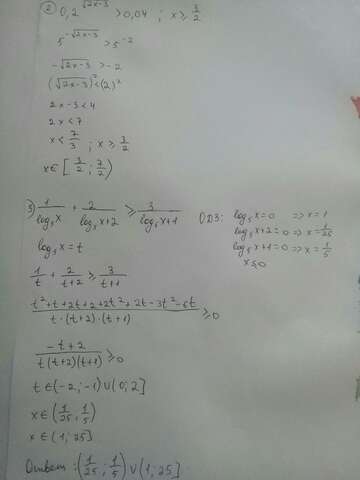 ② 0,2^√(2x-3) > 0,04 ; x ≥ 3/2
5^(-√(2x-3)) > 5^(-2)
-√(2x-3) > -2
(√(2x-3))² < (2)²
2x-3 < 4
2x < 7
x < 7/3 ; x ≥ 3/2
x ∈ [3/2 ; 7/2)
3) 1/log₅x + 2/(log₅x+2) ≥ 3/(log₅x+1)
ОДЗ: log₅x = 0 ⇒ x = 1
log₅x+2 = 0 ⇒ x = 1/25
log₅x+1 = 0 ⇒ x = 1/5
x ≤ 0
log₅x = t
1/t + 2/(t+2) ≥ 3/(t+1)
(t²+t+2t+2+2t²+2t-3t²-6t)/(t·(t+2)·(t+1)) ≥ 0
(-t+2)/(t(t+2)(t+1)) ≥ 0
t ∈ (-2; -1) ∪ (0; 2]
x ∈ (1/25 ; 1/5)
x ∈ (1; 25]
Ответ: (1/25 ; 1/5) ∪ (1; 25]